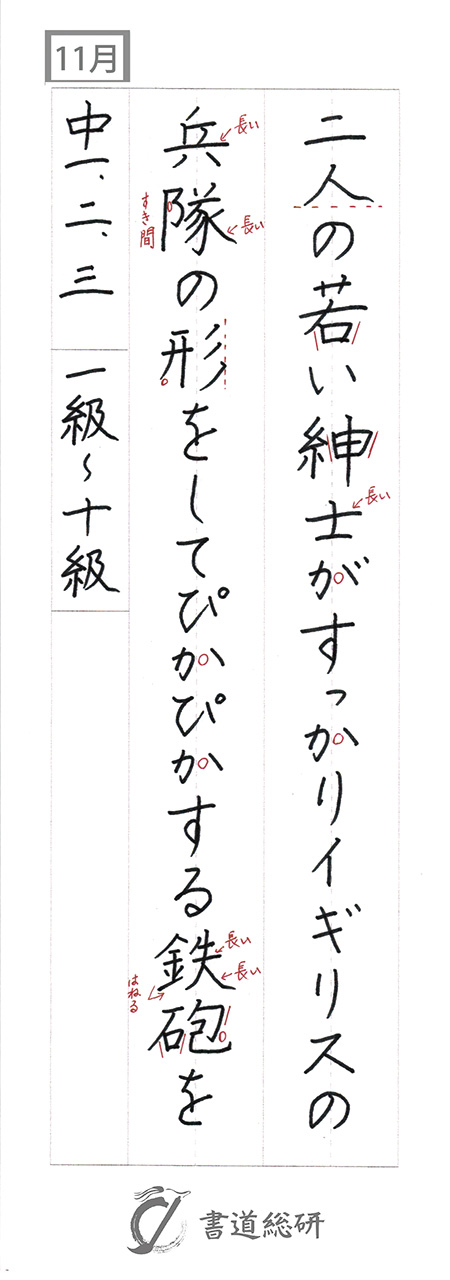 11月
二人の若い紳士がすっかりイギリスの
長い
兵隊の形をしてぴかぴかする鉄砲を
長い
長い
すき間
長い
長い
はねる
中一、二、三 一級〜十級
書道総研